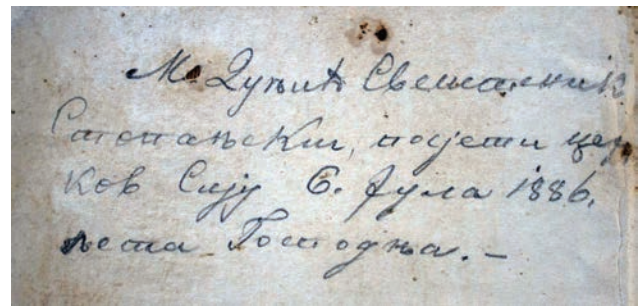 М. Зуњић Свештеник
Степањски, посјети цер
ков Сију 6. Јула 1886.
љета Господња. –